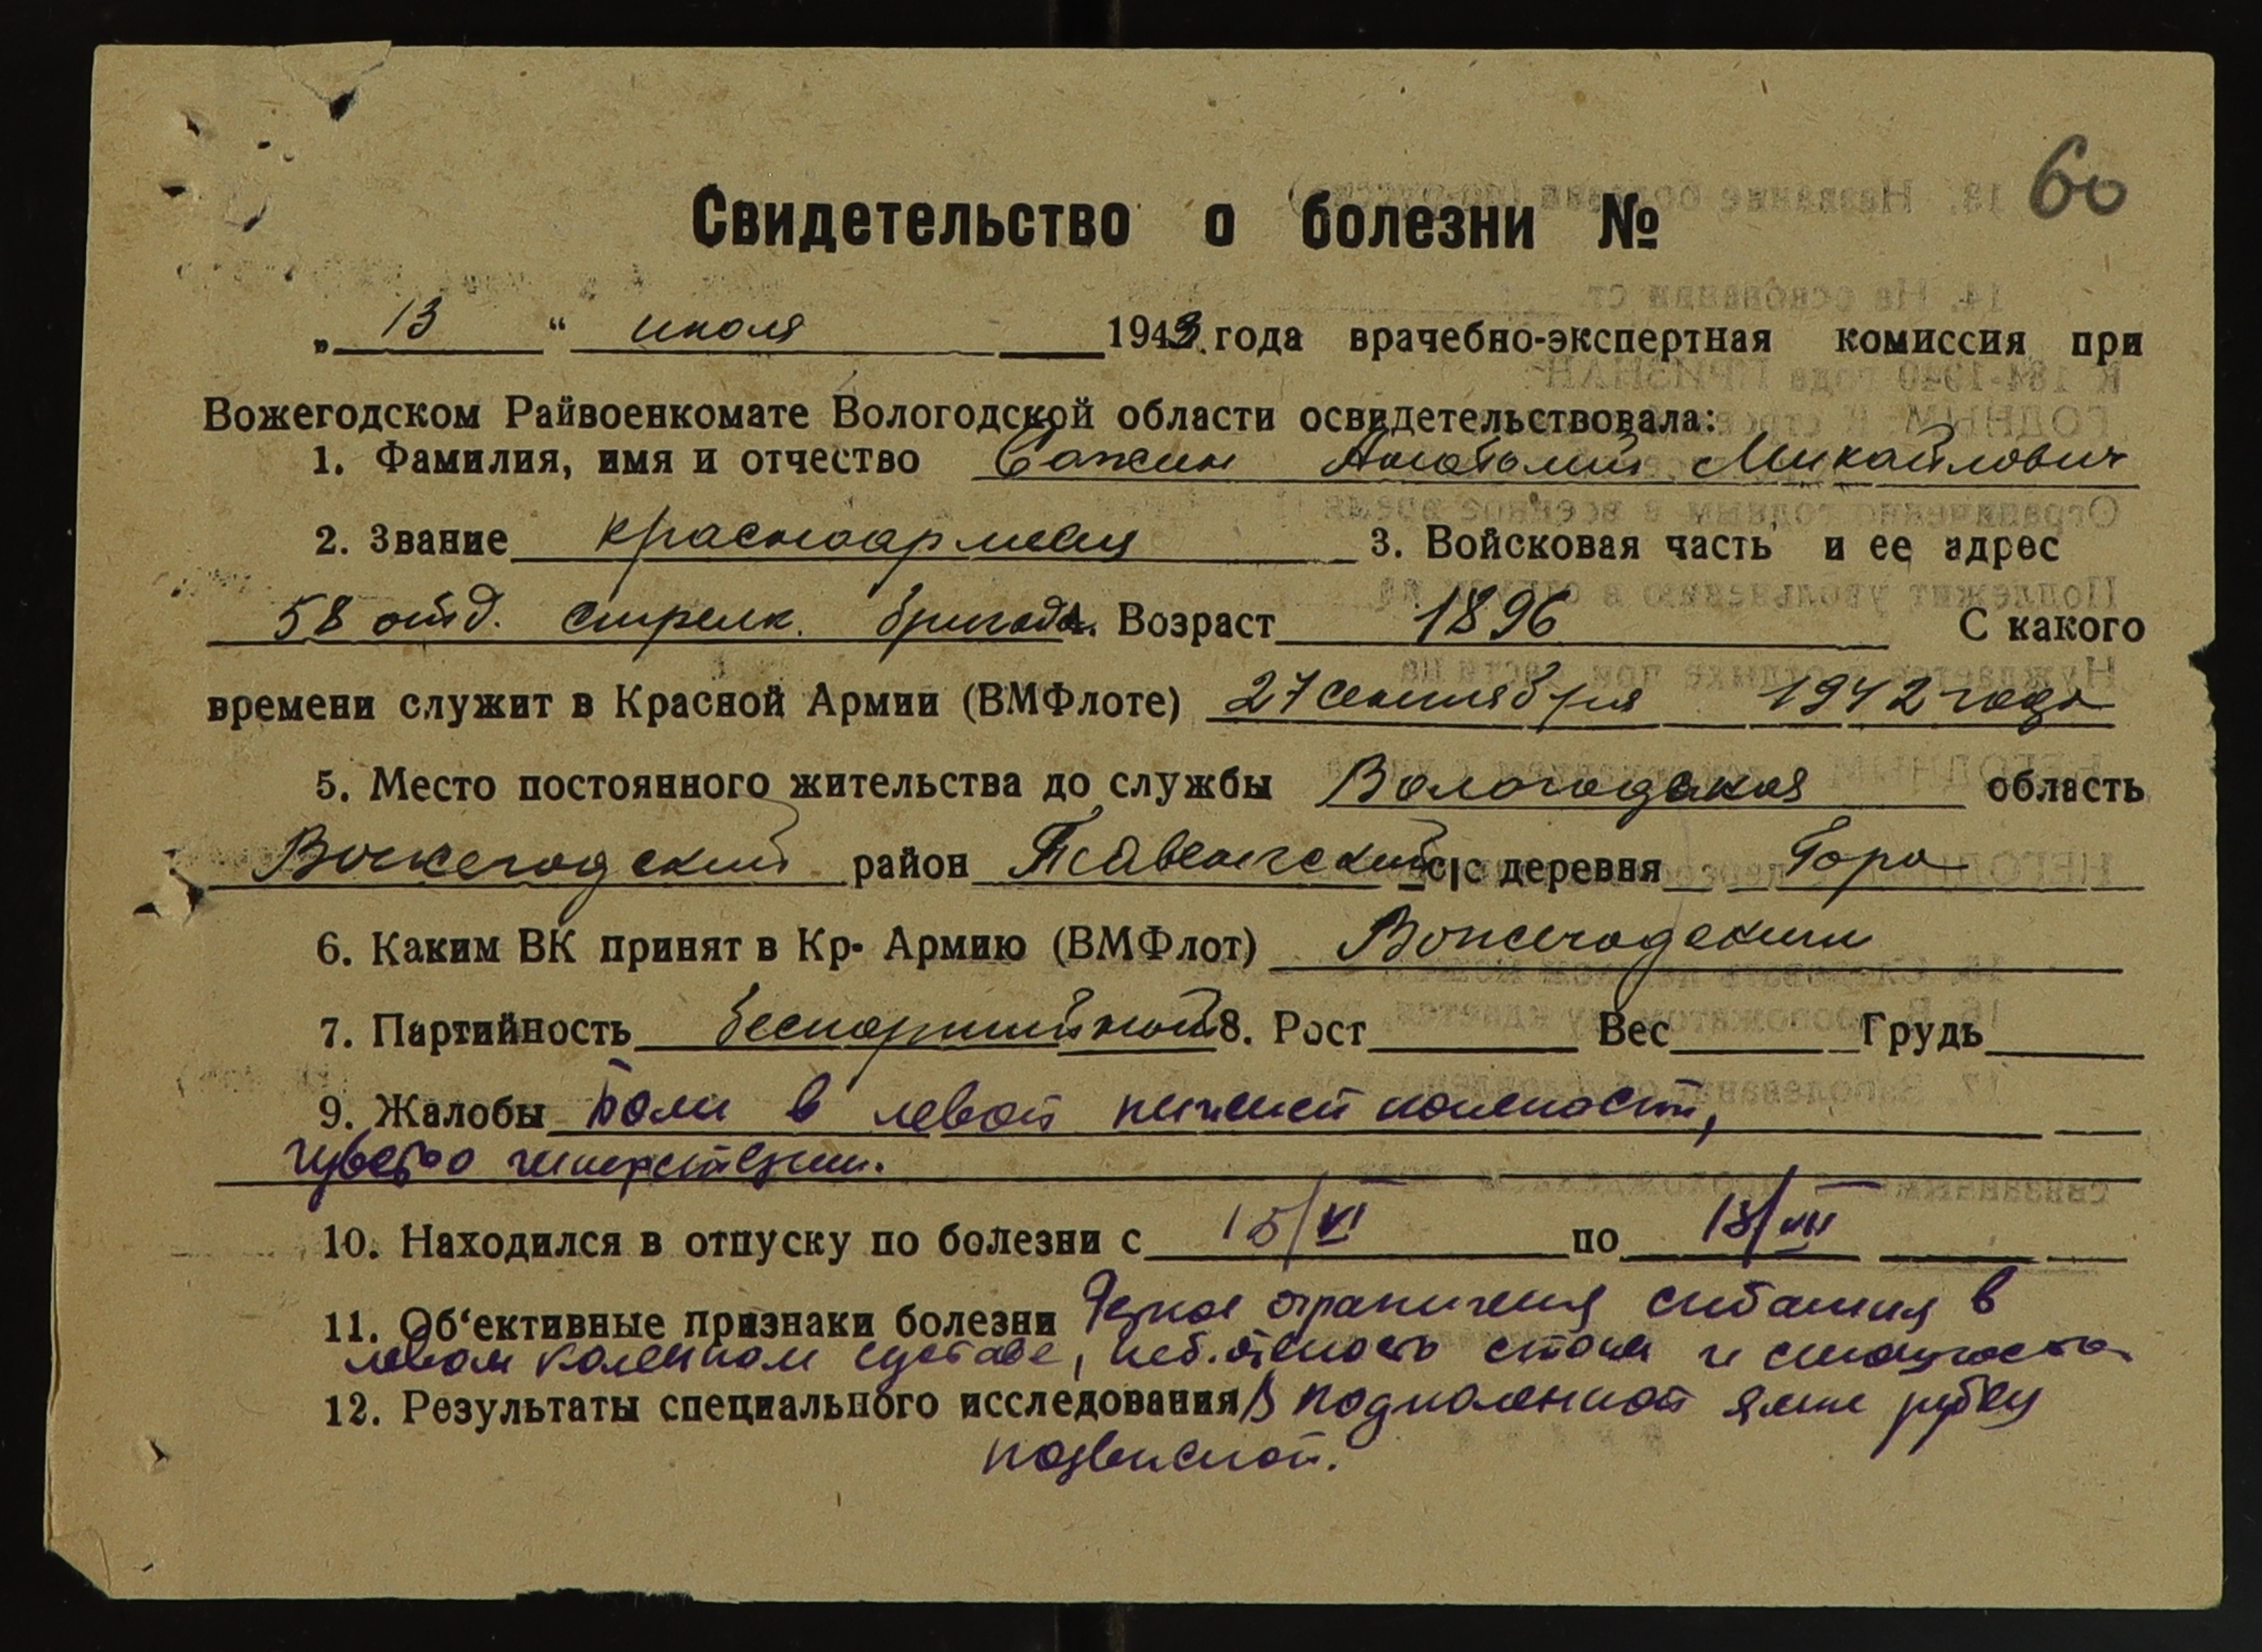 60
Свидетельство о болезни №
„ 13 “ июля 1943 года врачебно-экспертная комиссия при
Вожегодском Райвоенкомате Вологодской области освидетельствовала:
1. Фамилия, имя и отчество Сажин Анатолий Михайлович
2. Звание красноармеец 3. Войсковая часть и ее адрес
58 отд. стрелк. бригада 4. Возраст 1896 С какого
времени служит в Красной Армии (ВМФлоте) 27 сентября 1942 года
5. Место постоянного жительства до службы Вологодская область
Вожегодский район Тавенгский с|с деревня Гора
6. Каким ВК принят в Кр- Армию (ВМФлот) Вожегодским
7. Партийность беспартийной 8. Рост Вес Грудь
9. Жалобы Боли в левой нижней конечности,
чувство гиперстезии.
10. Находился в отпуску по болезни с 15/VI по 13/VII
11. Об‘ективные признаки болезни Резкое ограничения сгибания в
левом коленном суставе, неб. отечность стопы и
12. Результаты специального исследования В подколенной ямке рубец